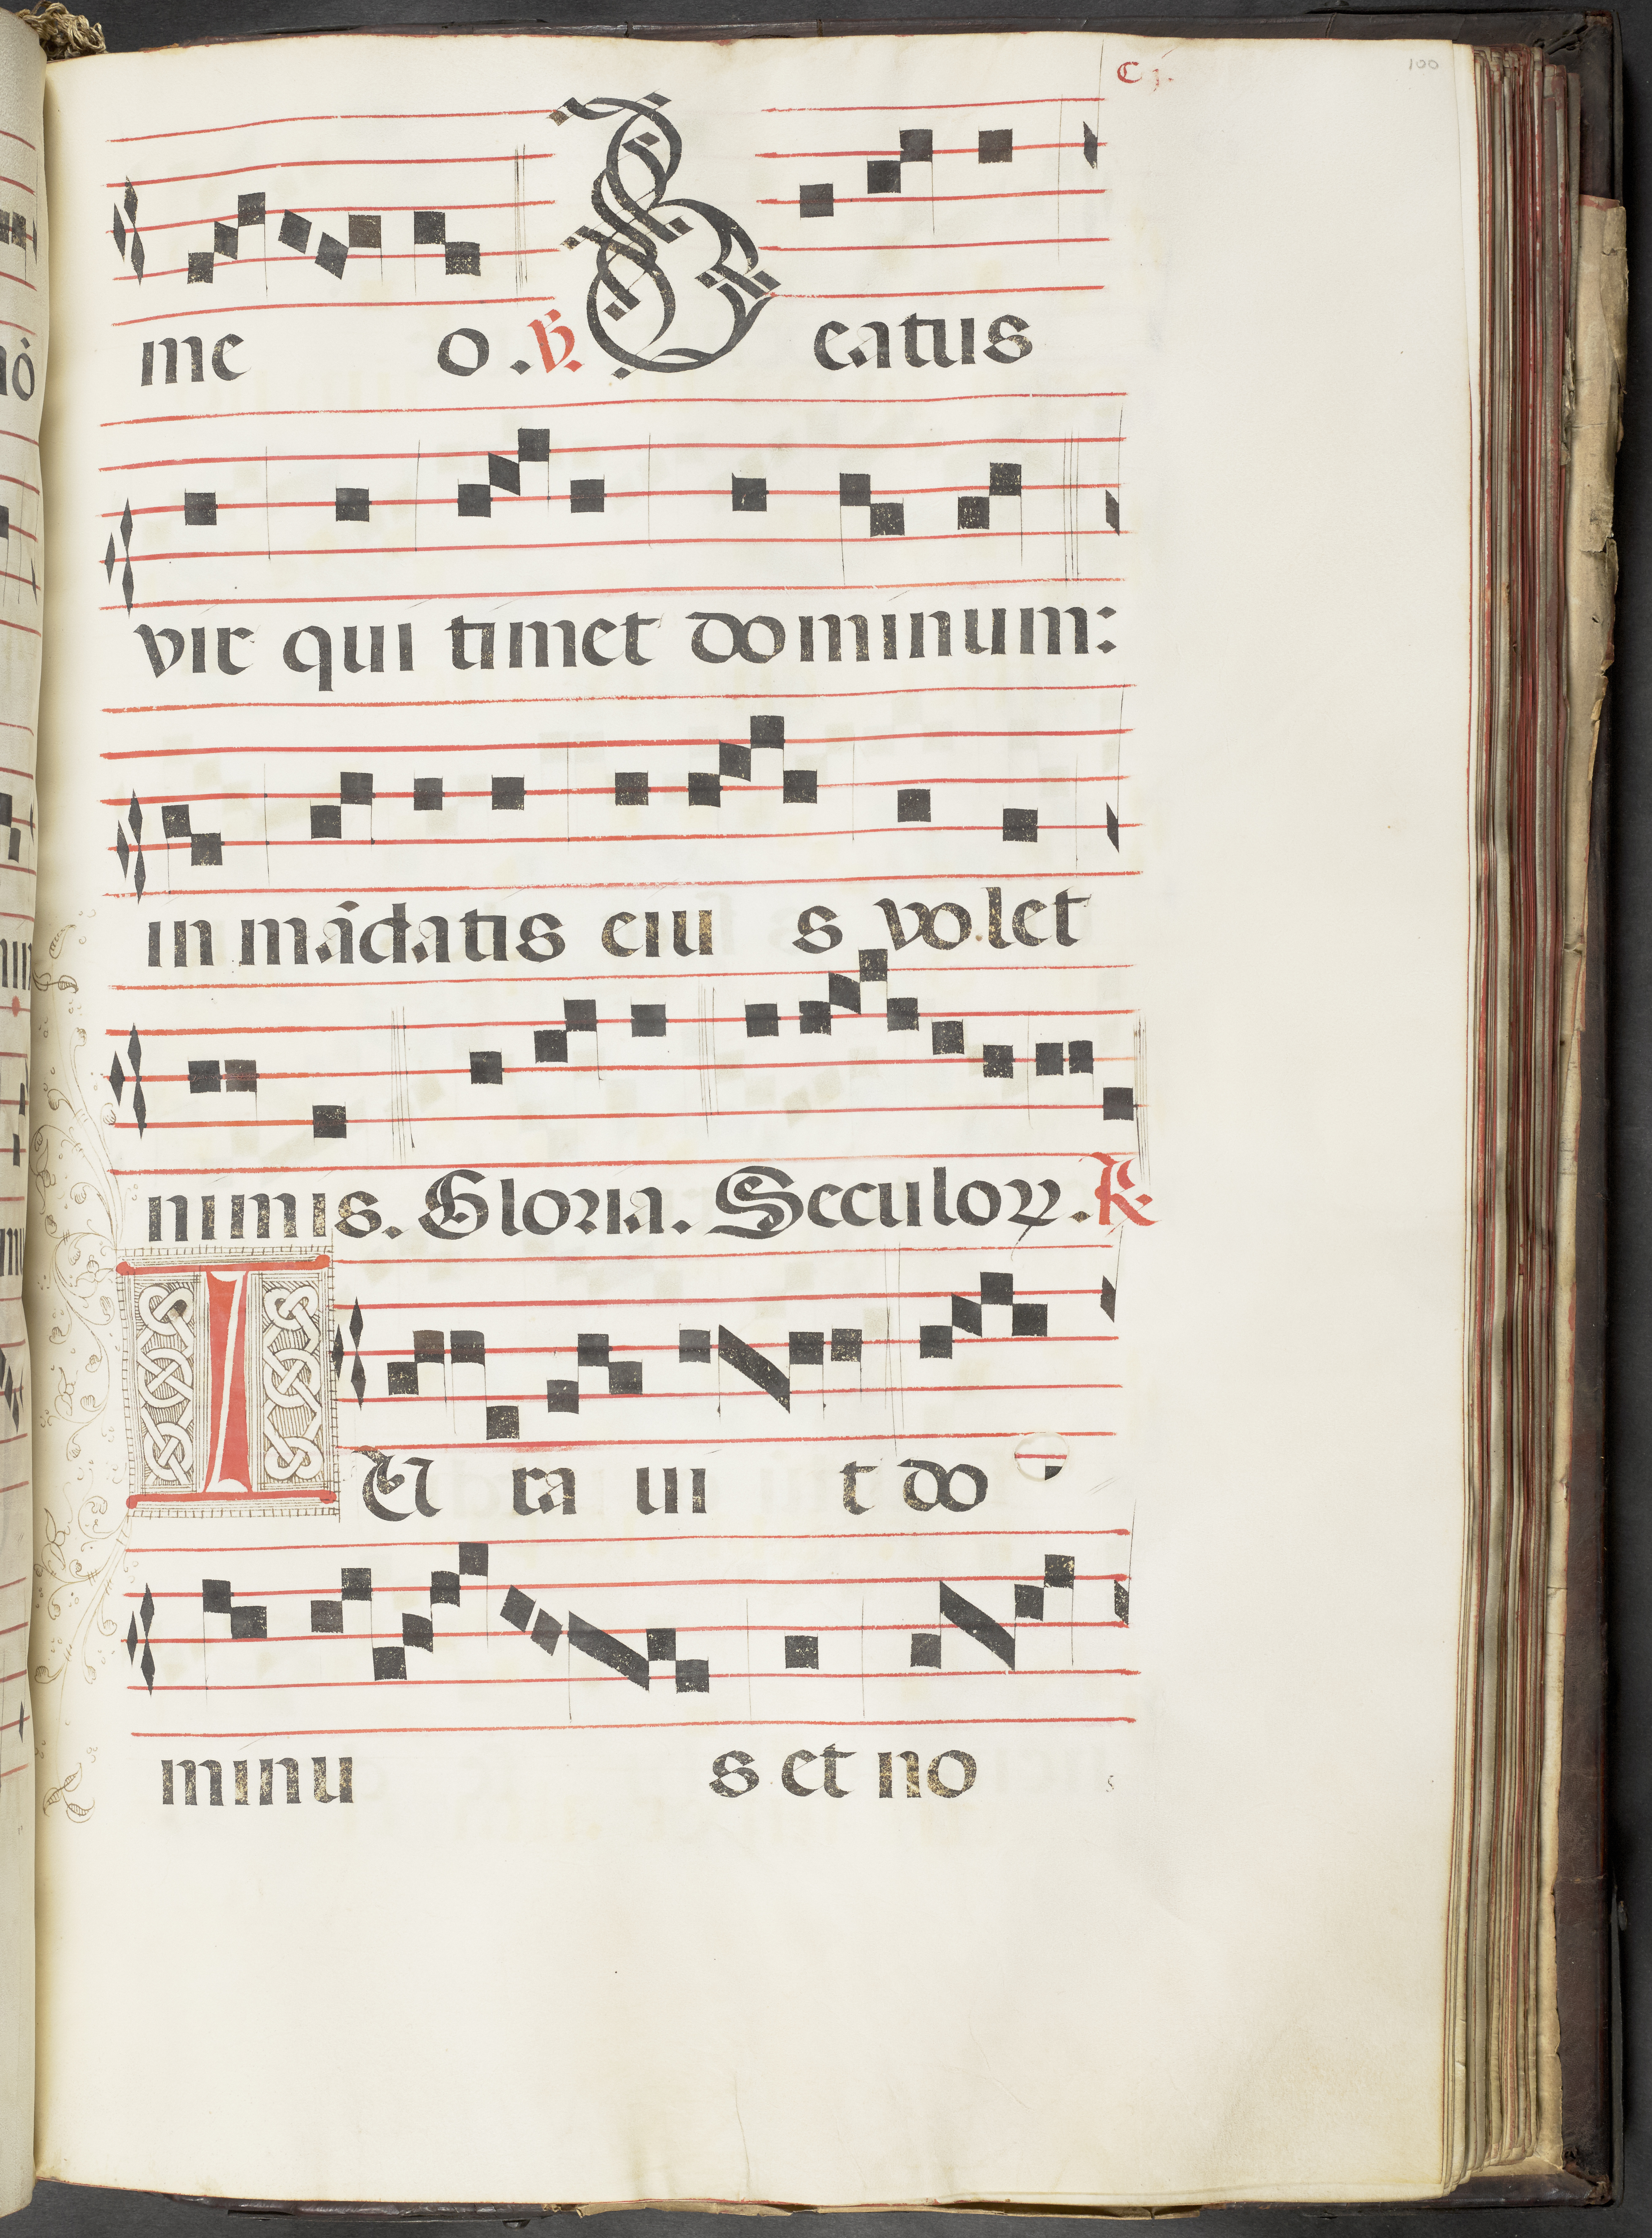 C j. 100
me o. ℣. Beatus
vir qui timet dominum:
in mādatis eiu s volet
nimis. Gloria. Seculoꝝ. ℟.
IU ra ui t do
minu s et no